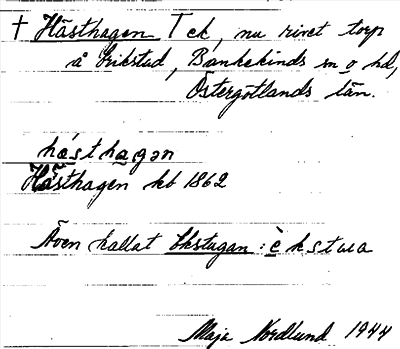 † Hästhagen T ek, nu rivet torp
å Grikstad, Bankekinds sn o hd,
Östergötlands län.
hàsthagən
Hästhagen kb 1862
Även kallat Ekstugan: èkstua
Maja Nordlund 1944